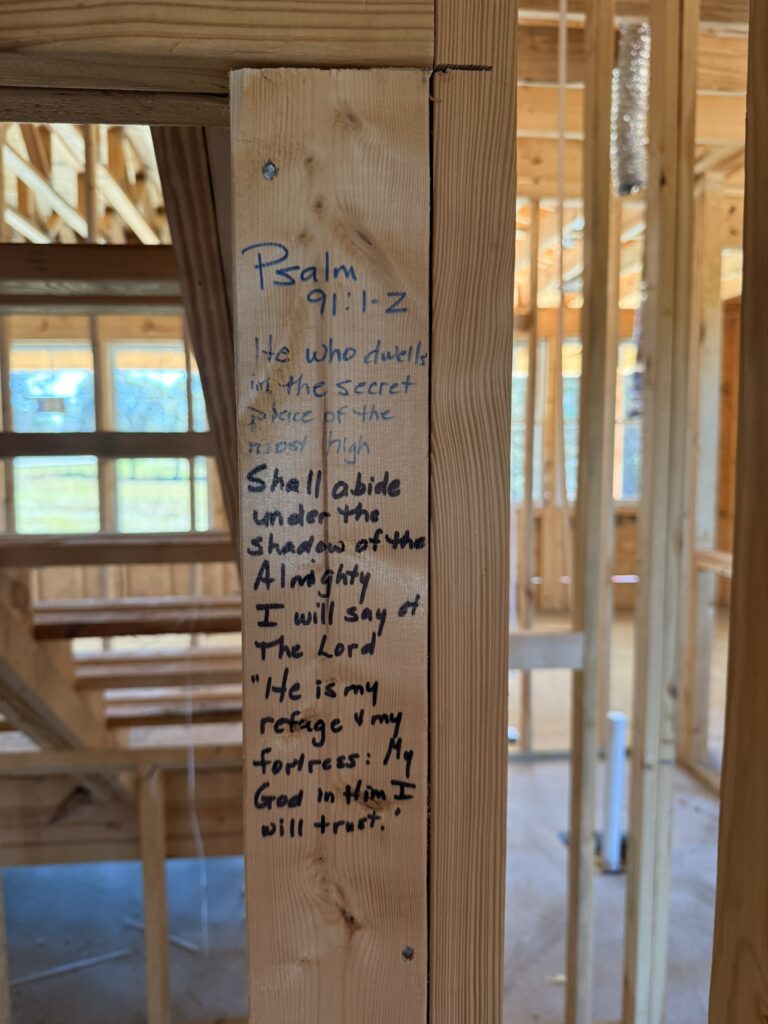 Psalm
91:1-2
He who dwells
in the secret
place of the
most high
Shall abide
under the
shadow of the
Almighty
I will say of
The Lord
"He is my
refuge & my
fortress: My
God in Him I
will trust."